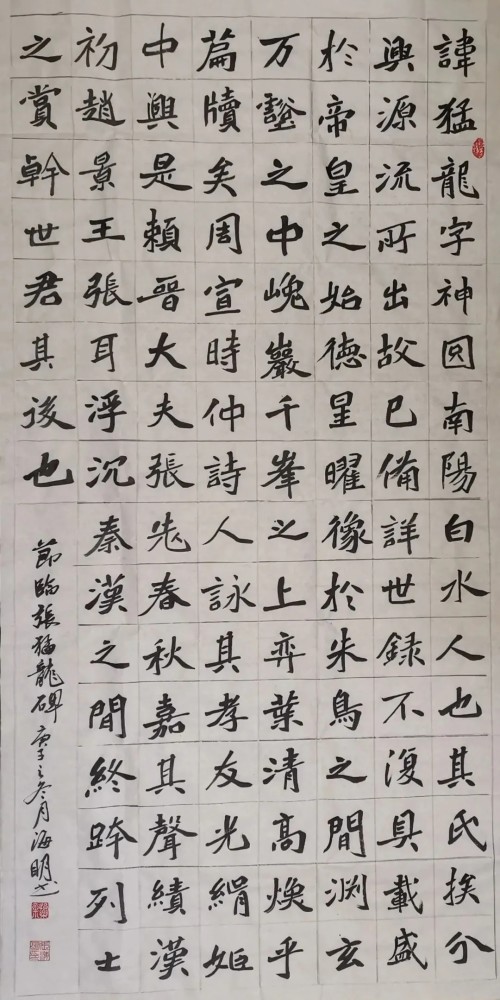 諱猛龍字神囧南陽白水人也其氏挨分
興源流所出故已備詳世録不復具載盛
於帝皇之始德星曜像於朱鳥之間渕玄
万壑之中巋巖千峯之上弈葉清高煥乎
篇牘矣周宣時仲詩人詠其孝友光緝姬
中興是賴晉大夫張老春秋嘉其聲績漢
初趙景王張耳浮沉秦漢之間終跨列士
之賞幹世君其後也
節臨張猛龍碑庚子之冬月海明書